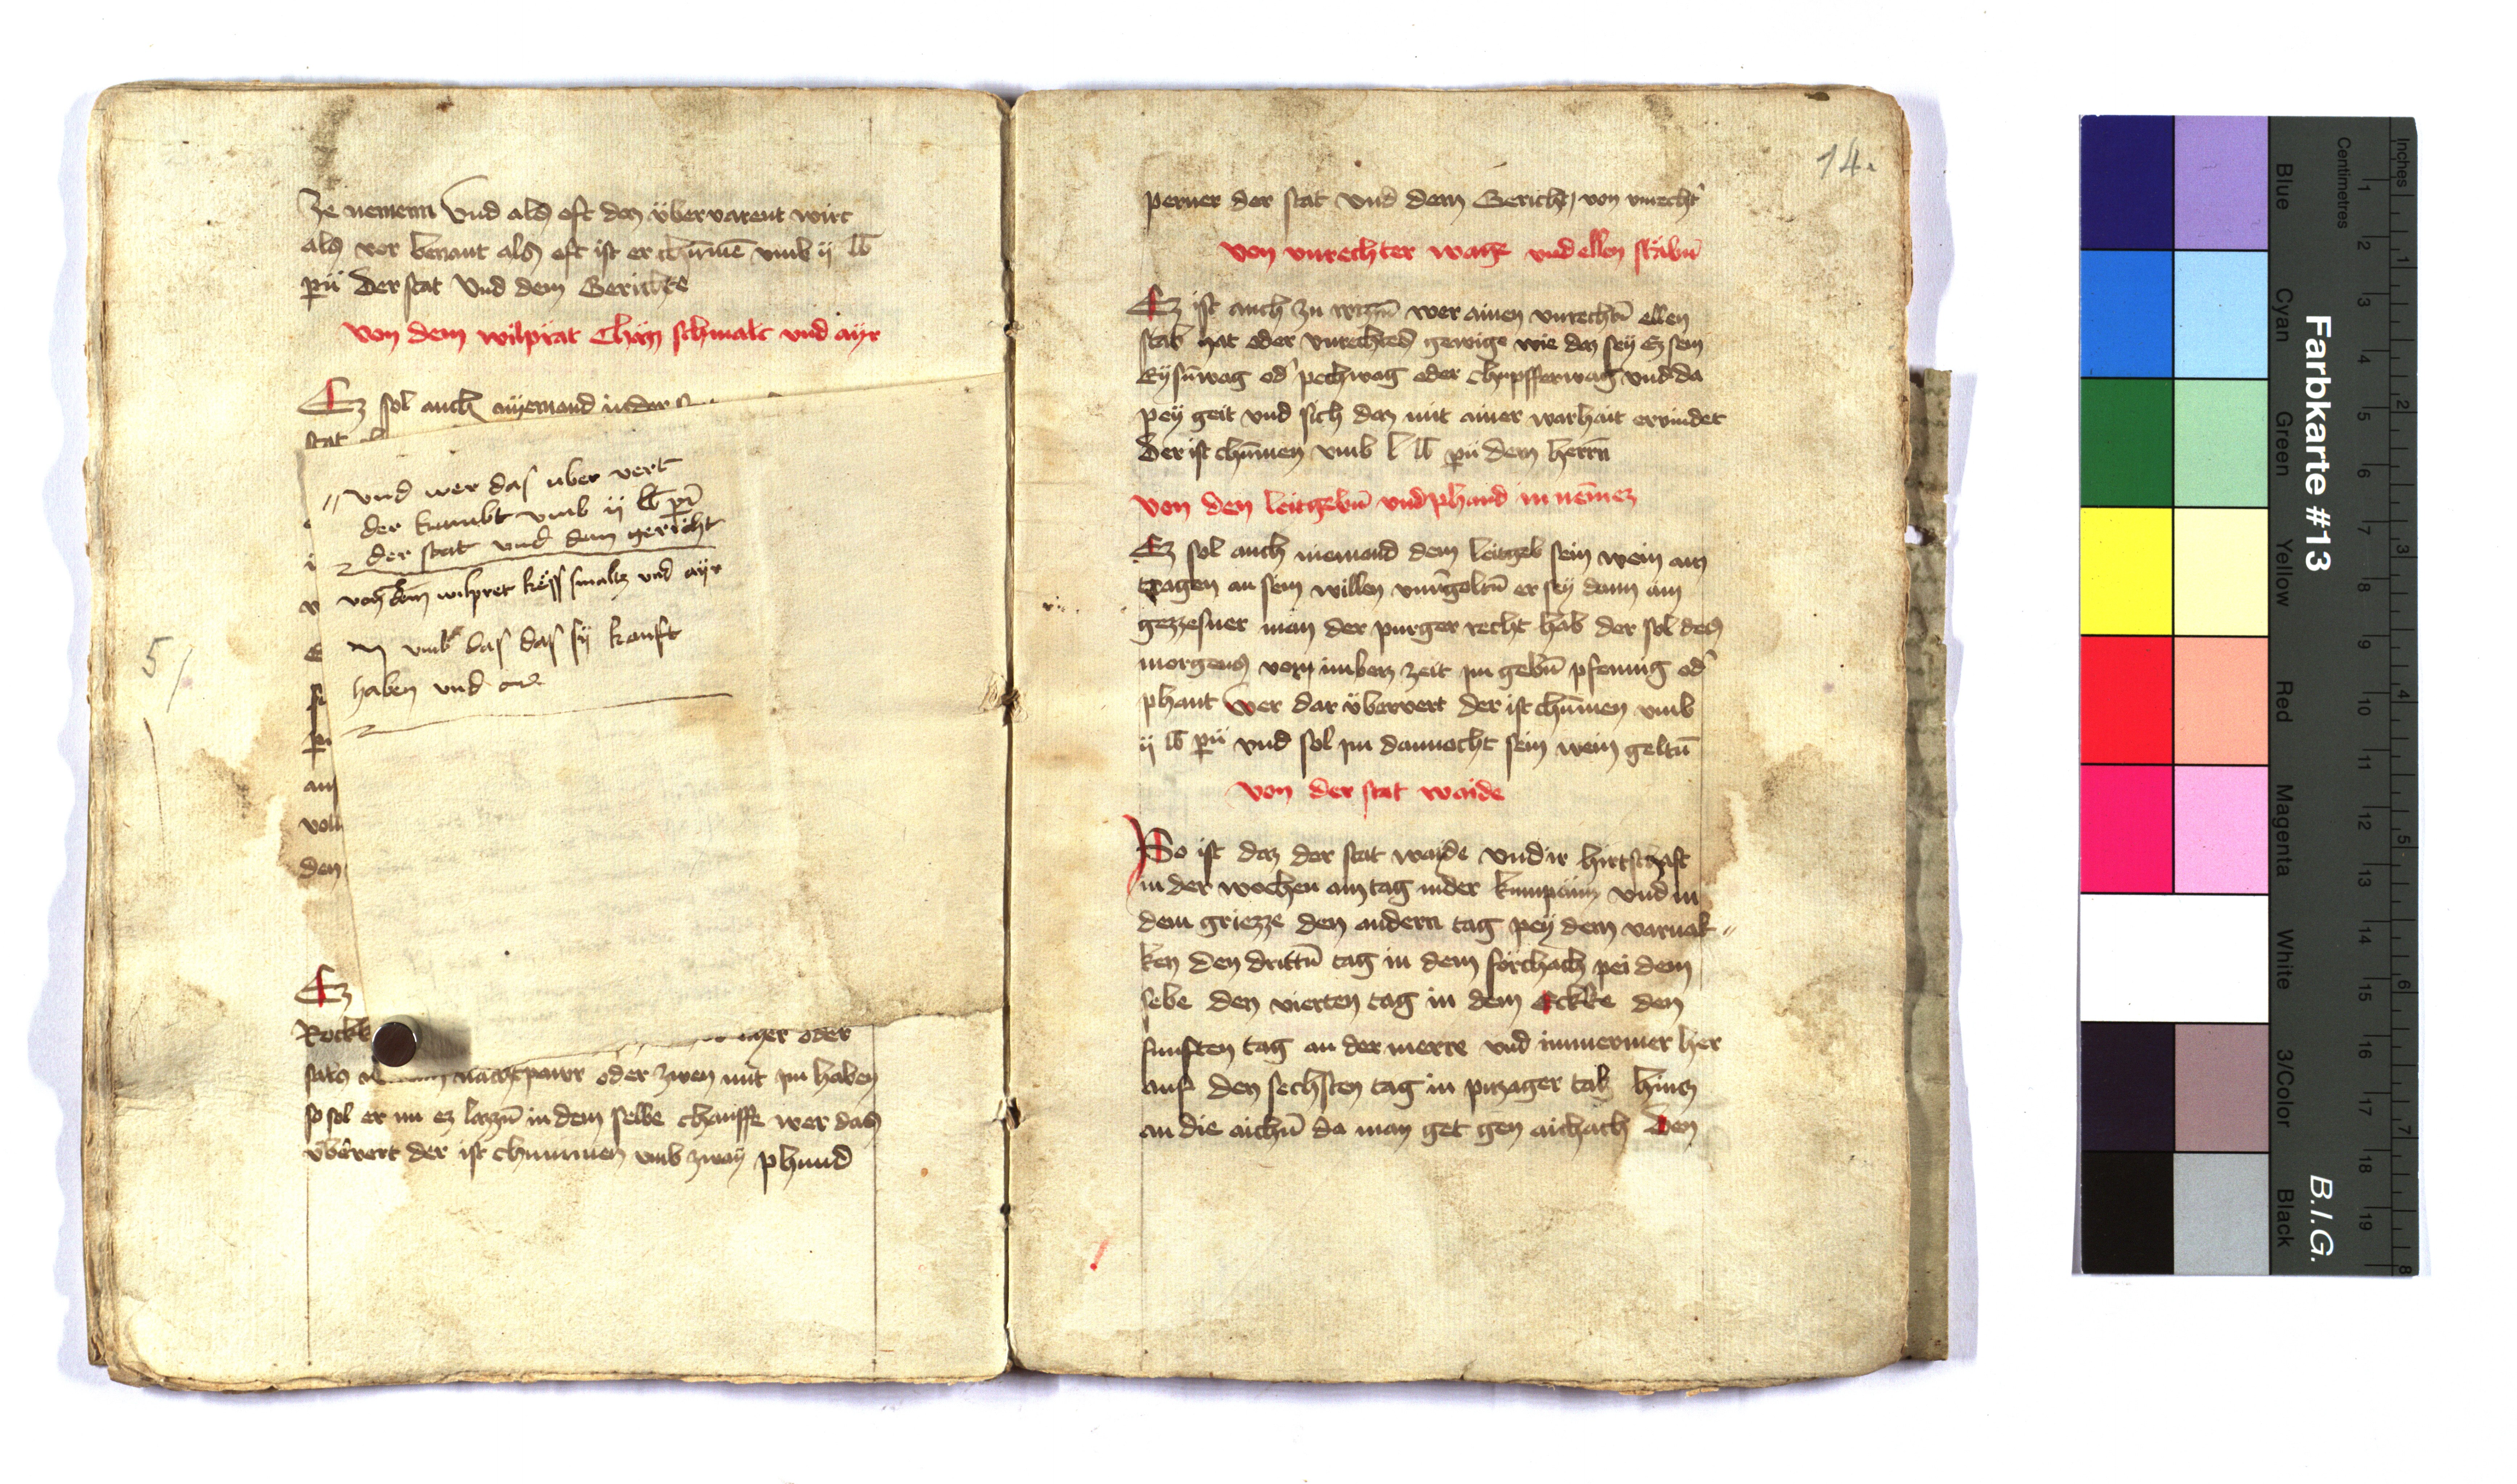 ze nemenn Vnd als oft daz übervarent wirt
als vor benant als oft ist er chūmē vmb ij lb
pn̄ der stat Vnd dem Gerichte
Von dem wilprat Chāz schmalc vnd ayr
Ez sol auch nyemand in der
stat
// vnd wer das uber vert
der kumbt vmb ij lb pn̄
der stat vnd dem gericht
von dem wilpret këss smaltz vnd ayr
vmb das das sÿ kauft
haben vnd
5/
an
den
Ez
Rockk
oder
nachtpawr oder zwen mit im haben
so sol er im ez lazzn̄ in dem selbe chauffe wer das
vb̄rvert der ist chummen vmb zway phund
14.
perner der stat vnd dem Gericht, von vnrecht̉
Von vnrechter wage vnd ellen stäbn̄
Ez ist auch zu wizzn̄ wer ainen vnrechtn̄ ellen
stab hat oder vnrechtes gewige wie daz sey Ez sein
Eysn̄wag od̉ pechwag oder chupfferwag vnd da
pey geit vnd sich daz mit ainer warhait ervindet
Der ist chūmen vmb l lb pn̄ dem herrn̄
Von den leitgebn̄ vnd phand in nēmez
Ez sol auch niemand dem leitgeb sein wein am
tragen an sein willen vnu̇goltn̄ er sey dann ain
gezzesner man der purger recht hab der sol des
morgens vom imbez zeit im gebn̄ pfennig od̉
phant Wer dar übervert der ist chūmen vmb
ij lb pn̄ vnd sol im dannocht sein wein geltn̄
Von der stat waide
So ist daz der stat wayde vnd ir hirtschaft
in der wochen ain tag in der kumpänn vnd in
dem griezze den andern tag pey dem varnak //
ken den drittn̄ tag in dem forchach pei dem
sebe den vierten tag in dem Eckke den
funften tag an der merre vnd immermer her
auf den sechsten tag in pizager tal hincz
an die aichn̄ da man get gen aichach Den
Farbkarte #13
B.I.G.
Inches
Centimetres
1 2 3 4 5 6 7 8 9 10 11 12 13 14 15 16 17 18 19
1 2 3 4 5 6 7 8
Blue
Cyan
Green
Yellow
Red
Magenta
White
3/Color
Black